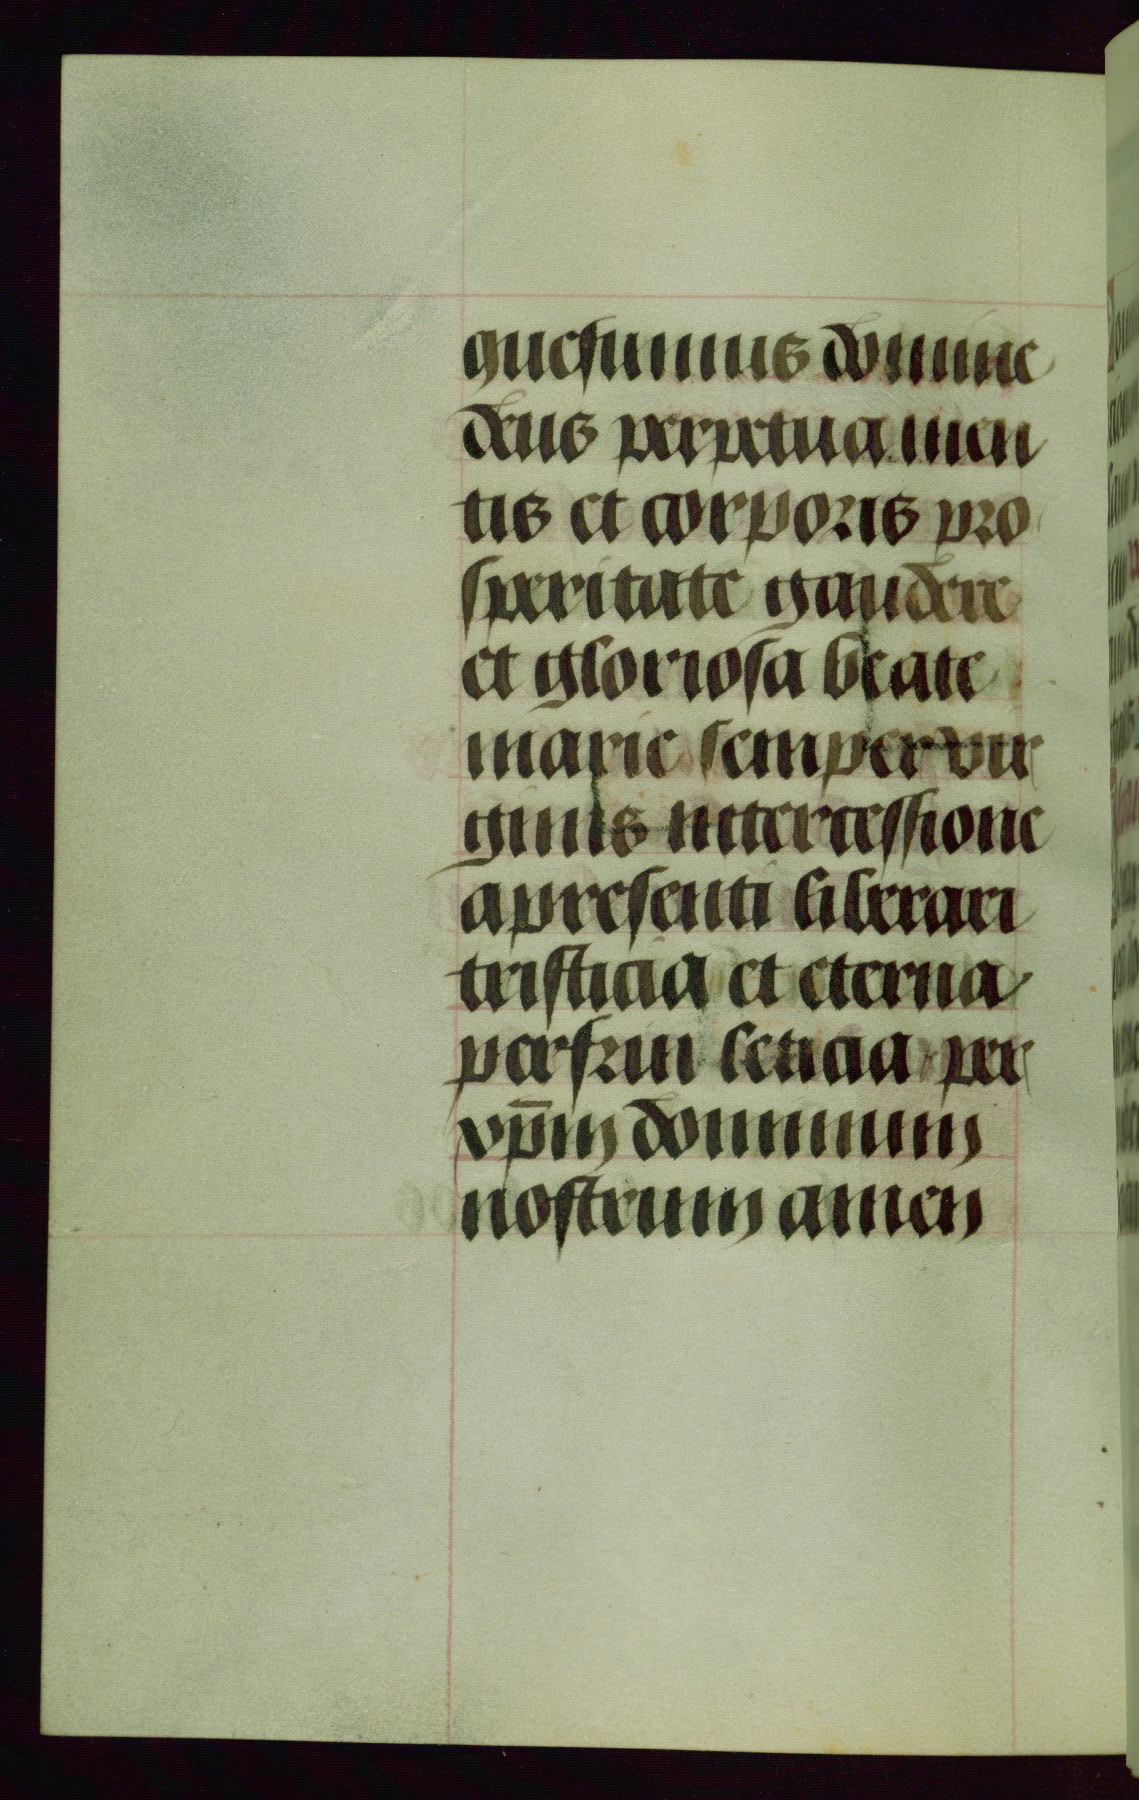 quesumus domine
deus perpetua men
tis et corporis pro
speritate gaudere
et gloriosa beate
marie semper vir
ginis intercessione
a presenti liberari
tristicia et eterna
perfrui leticia per
xp̄m dominum
nostrum amen